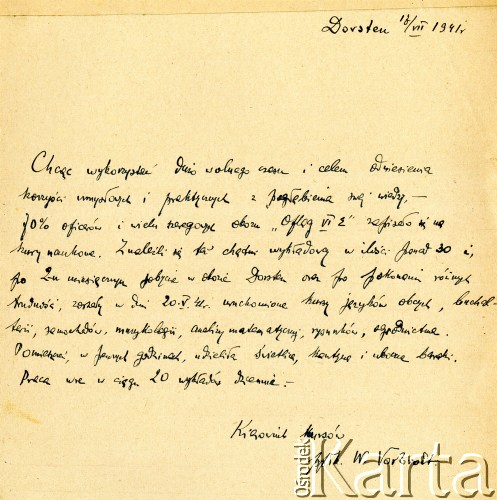 Dorsten 13/VII 1941r
Chcąc wykorzystać dużo wolnego czasu i celem odniesienia
korzyści umysłowych i praktycznych z pogłębienia swej wiedzy,—
70% oficerów i wielu szeregowych obozu "Oflag VI E" zapisało się na
kursy naukowe. Znaleźli się też chętni wykładowcy w ilości ponad 30 i,
po 2u miesięcznym pobycie w obozie Dorsten oraz po pokonaniu różnych
trudności, zostały w dniu 20-V-41r. uruchomione kursy języków obcych, buchal-
terii, samochodów, muzykologii, analizy matematycznej, rysunków, ogrodnictwa.
Pomieszczeń, w pewnych godzinach, udzieliła świetlica, kantyna i baraki.
Praca wre w ciągu 20 wykładów dziennie.—
Kierownik Kursów
W.
Ośrodek
Karta